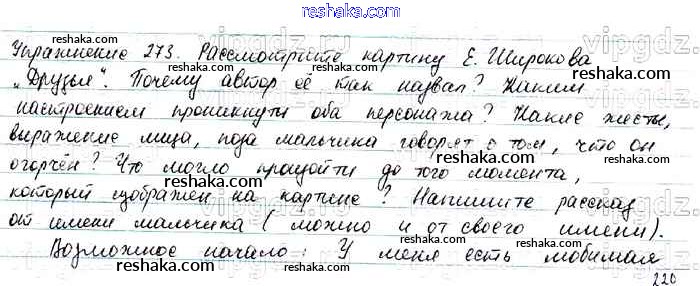 reshaka.com
Упражнение 273. Рассмотрите картину Е. Широкова
„Друзья". Почему автор её так назвал? Каким
настроением проникнуты оба персонажа? Какие жесты,
выражение лица, поза мальчика говорят о том, что он
огорчён? Что могло произойти до того момента,
который изображён на картине? Напишите рассказ
от имени мальчика (можно и от своего имени).
Возможное начало: У меня есть любимая
220
reshaka.com